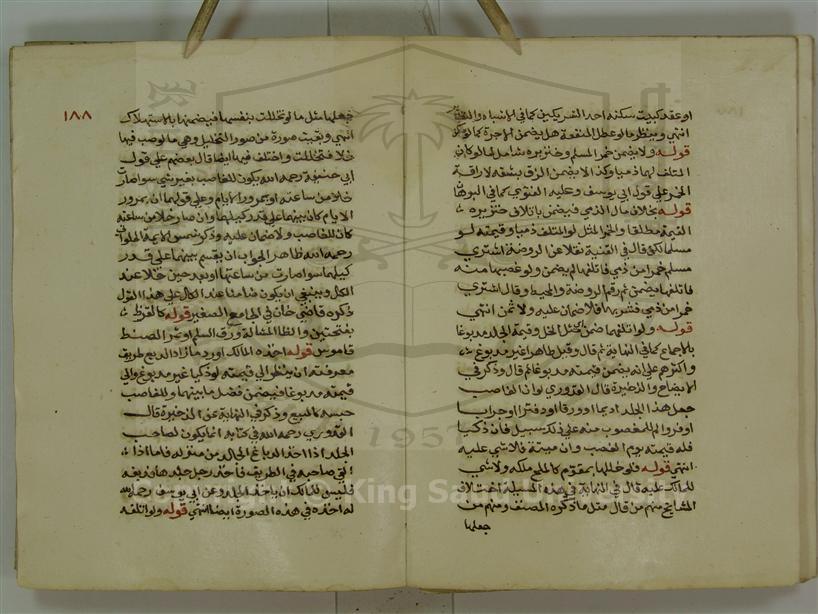 او عقد كبيت سكنه احد الشريكين كما في الاشباه
انتهى وينظر ما لو عطل المنفعة هل يضمن الاجرة كما لو
قوله ولا يضمن خمر المسلم وخنزيره شامل لما لو كان
المتلف لهما ذميا وكذا لا يضمن الزق بشقه لاراقة
الخمر على قول ابي يوسف وعليه الفتوى كما في البرهان
قوله بخلاف مال الذمي فيضمن باتلاف خنزيره
القيمة مطلقا والخمر المثل لو المتلف ذميا وقيمته لو
مسلما لكن قال في القنية نقلا عن الروضة اشترى
مسلم خمرا من ذمي فاتلفها لم يضمن ولو غصبها منه
فاتلفها يضمن ثم رقم الروضة والمحيط وقال اشترى
خمرا من ذمي فشربها فلا ضمان عليه ولا ثمن انتهى
قوله ولو اتلفهما ضمن مثل الخل وقيمة الجلد مدبوغا
بالاجماع كما في النهاية ثم قال وقيل طاهرا غير مدبوغ
واكثرهم على انه يضمن قيمته مدبوغا ثم قال وذكر في
الايضاح والذخيرة قال القدوري لو ان الغاصب
جعل هذا الجلد اديما او ورقا او دفترا او جرابا
او فروا لم للمغصوب منه على ذلك سبيل فان ذكيا
فله قيمته يوم الغصب وان ميتة فلا شي عليه
انتهى قوله فلو خللها بمتقوم كالملح ملكه ولا شي
للمالك عليه قال في النهاية في هذه المسيلة اختلاف
المشايخ منهم من قال مثل ما ذكره المصنف ومنهم من
جعلها
١٨٨
جعلها مثل ما لو تخللت بنفسها فيضمنها بالاستهلاك
انتهى وبقيت صورة من صور التخليل وهي ما لو صب فيها
خلا فتخللت واختلف فيها ايضا قال بعضهم على قول
ابي حنيفة رحمه الله يكون للغاصب بغير شي سوا صارت
خلا من ساعته او بمرور الايام وعلى قولهما ان بمرور
الايام كان بينهما على قدر كيلهما وان صار خلا من ساعته
كان للغاصب ولا ضمان عليه وذكر شمس الايمة الحلواني
رحمه الله ظاهر الجواب ان يقسم بينهما على قدر
كيلهما سوا صارت من ساعتها او بعد حين خلا عند
الكل وينبغي ان يكون ضامنا عند الكل على هذا القول
ذكره قاضي خان في الجامع الصغير قوله كالقرظ
بفتحتين والظا المشالة ورق السلم او ثمر السنط
قاموس قوله اخذه المالك ورد ما زاد الدبغ طريق
معرفته ان ينظر الى قيمته لو ذكيا غير مدبوغ والى
قيمته مدبوغا فيضمن فضل ما بينهما وللغاصب
حبسه كالمبيع وذكر في النهاية عن الذخيرة قال
القدوري رحمه الله في كتابه انما يكون لصاحب
الجلد اذا اخذ الدباغ الجلد من منزله فاما اذا
القى صاحبه في الطريق فاخذ رجل جلدها فدبغه
فليس للمالك ان ياخذ الجلد وعن ابي يوسف رحمه الله
له اخذه في هذه الصورة ايضا انتهى قوله ولو اتلفه